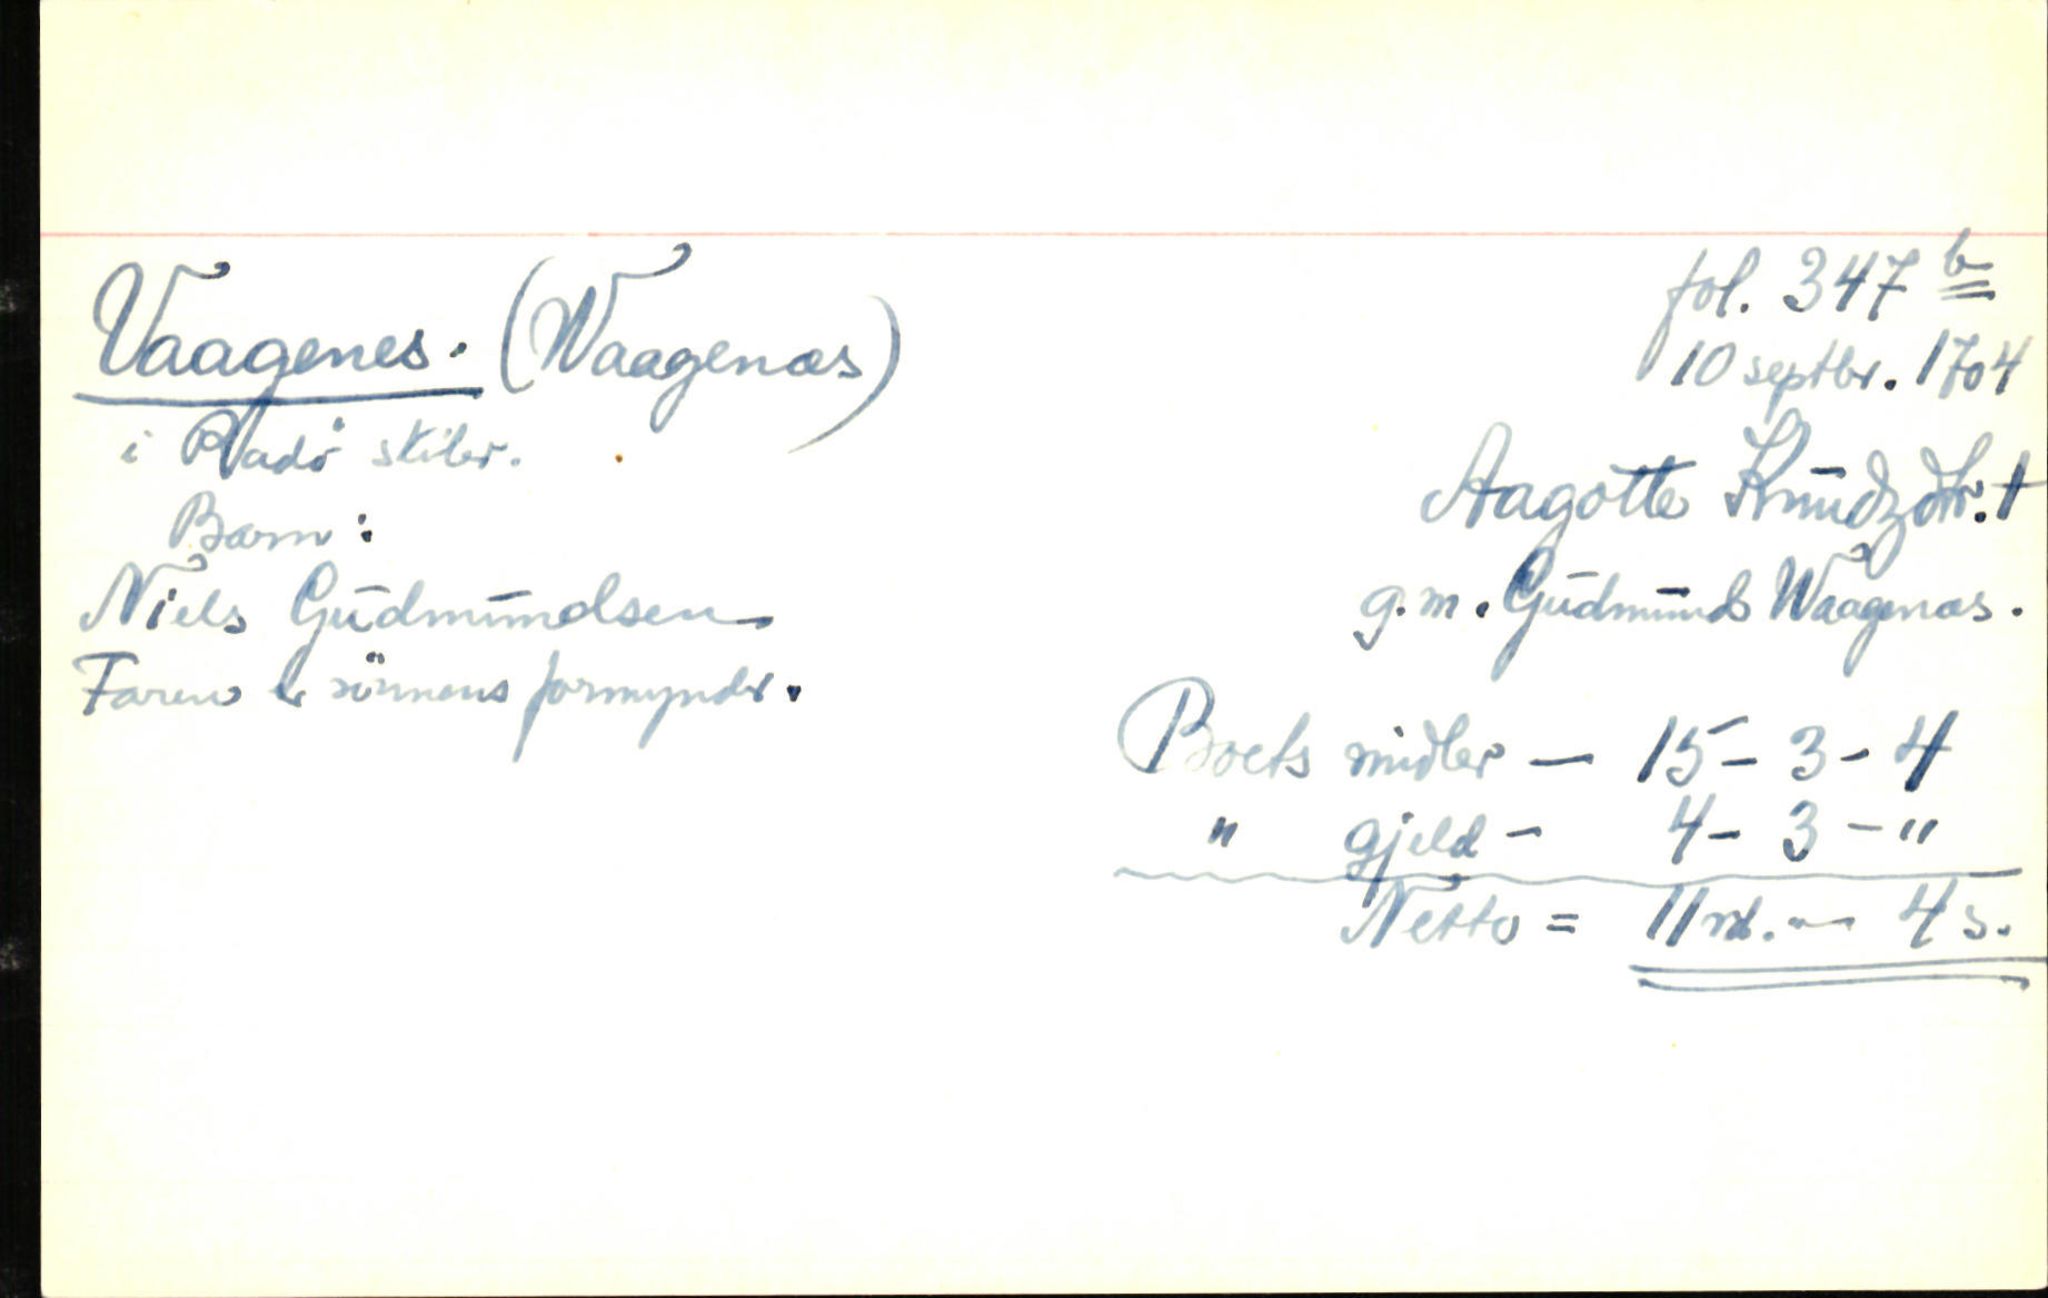 Vaagenes. (Waagenæs)
i Radö skibr.
Barn:
Niels Gudmundsen
Faren er sönnens formynder.
fol. 347 b
10 septbr. 1704
Aagotte Knudzdtr. †
g.m. Gudmund Waagenæs.
Boets midler — 15 - 3 - 4
" gjeld - 4 - 3 - "
Netto = 11 rd. - " - 4 s.